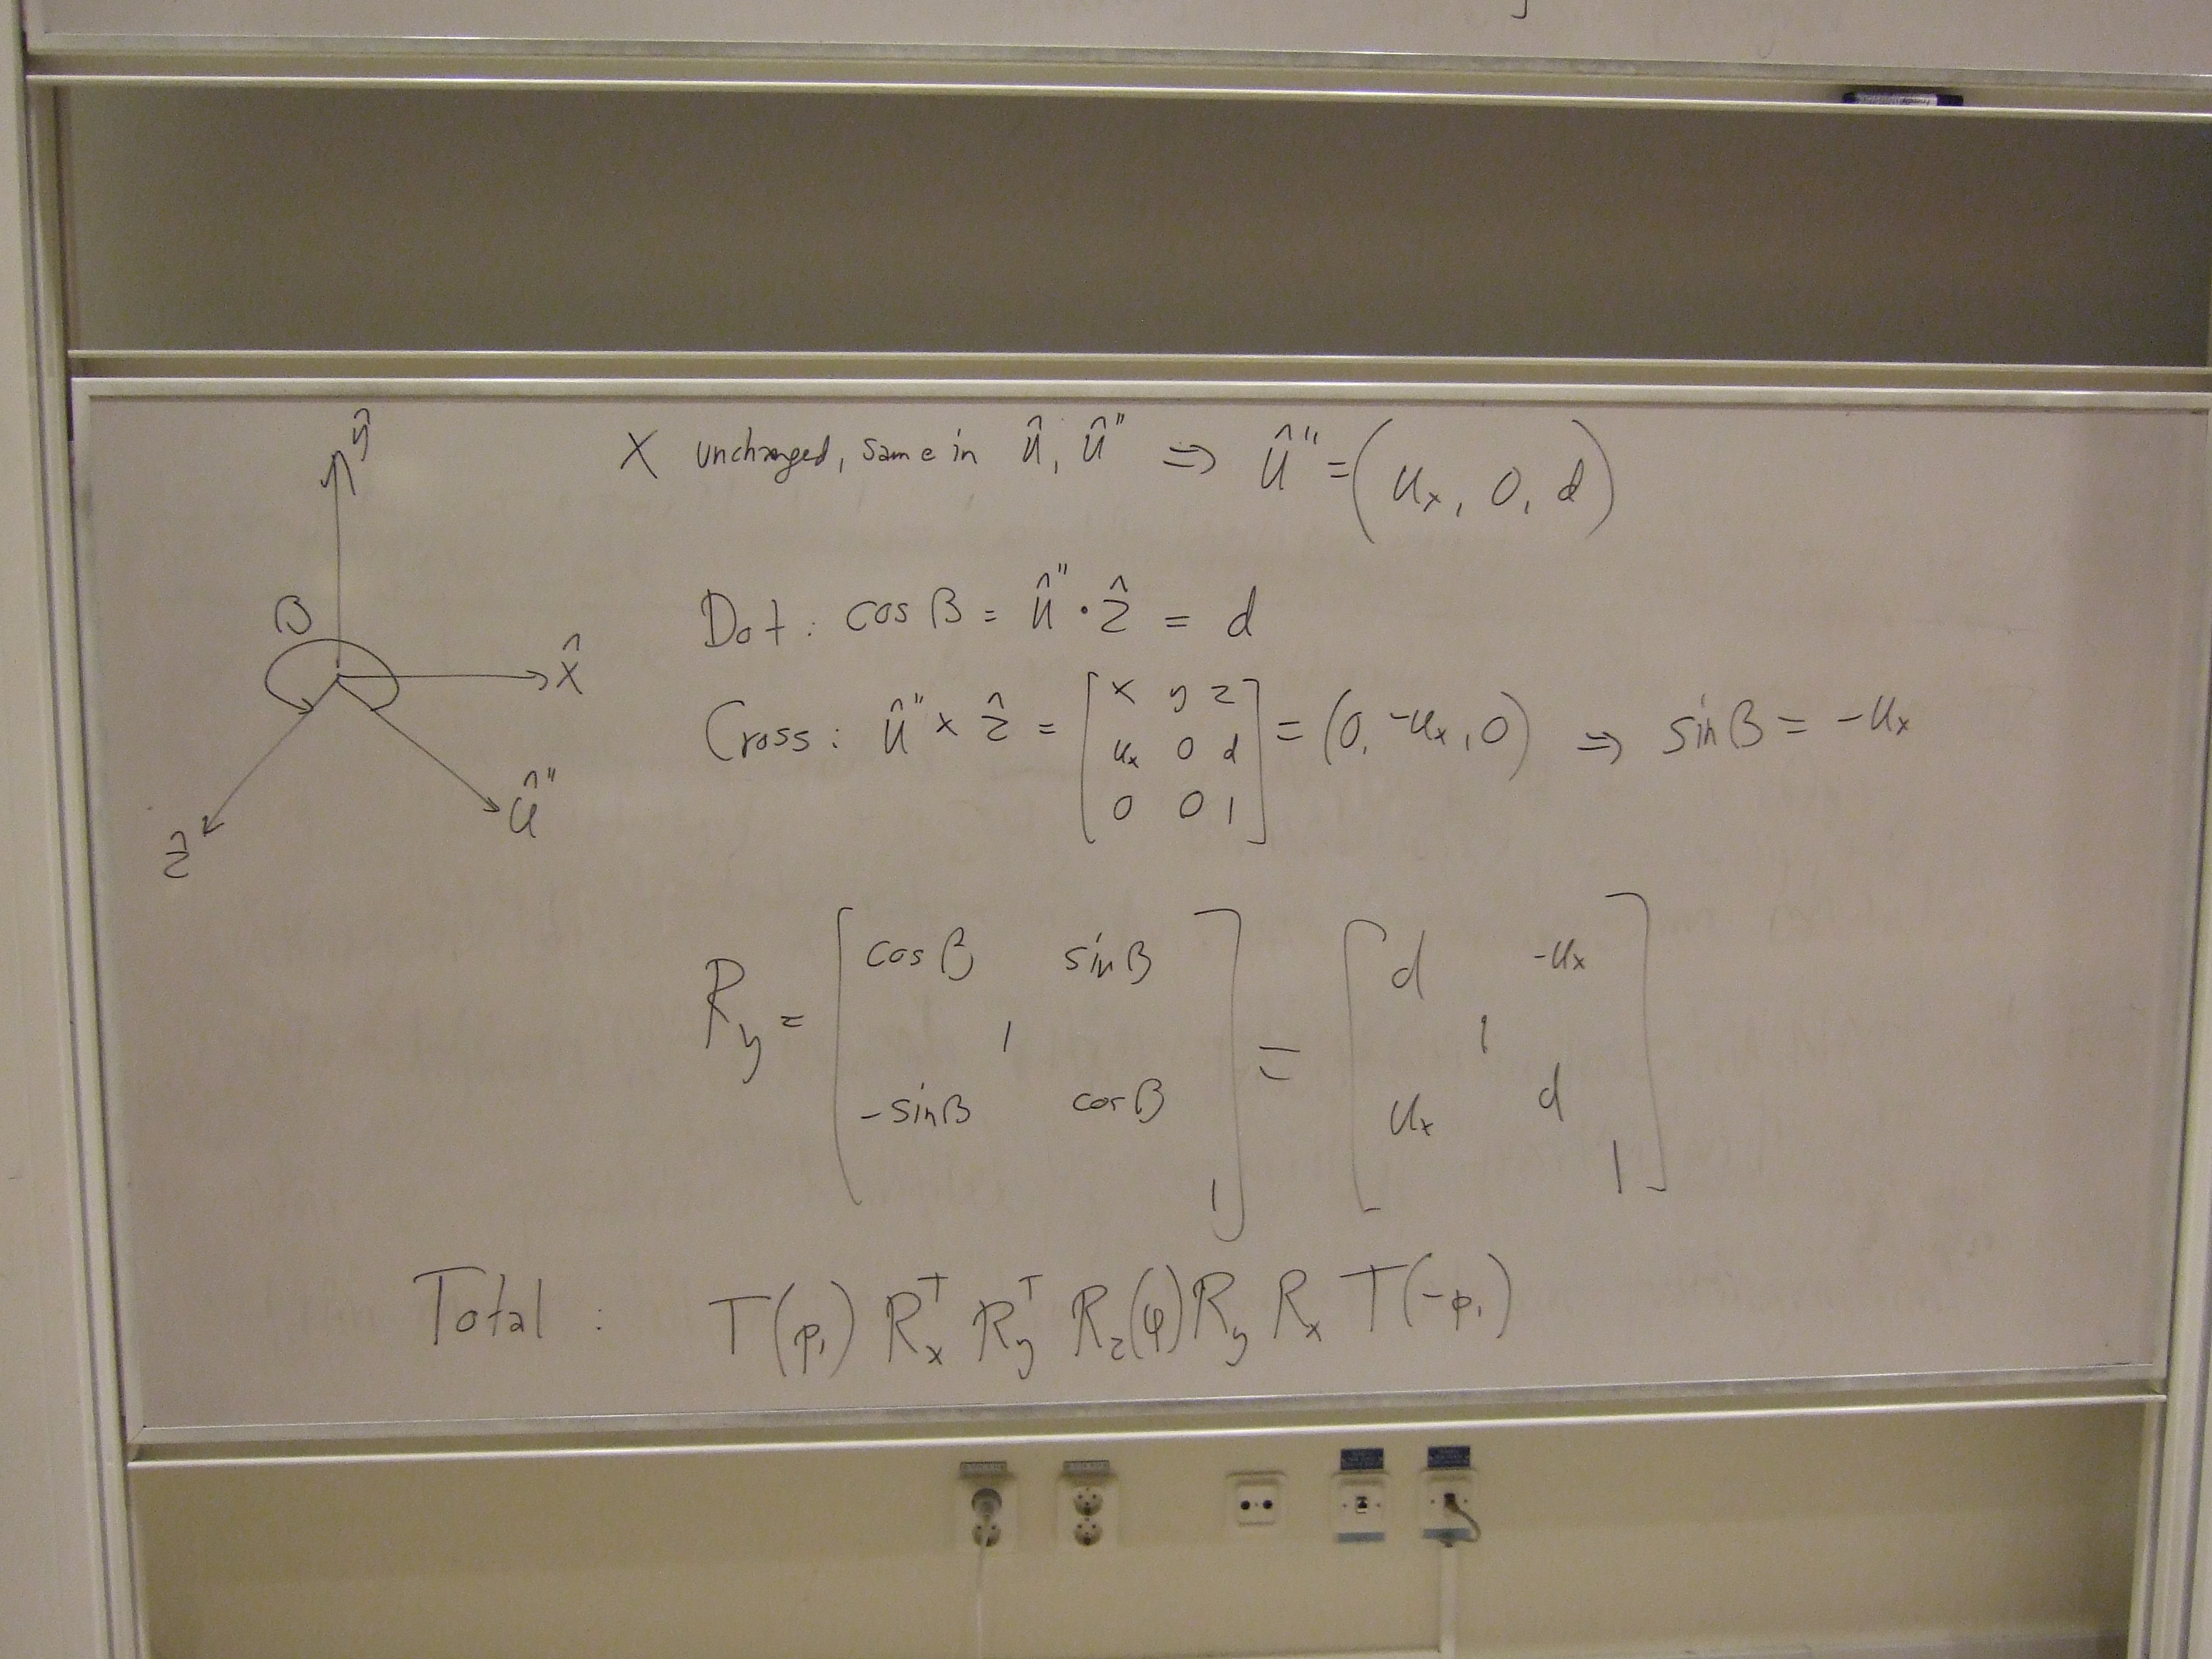 ŷ
B
x̂
û"
ẑ
X unchanged, same in û, û" ⇒ û" = (uₓ, 0, d)
Dot: cos B = û" · ẑ = d
Cross: û" × ẑ = [ x y z
uₓ 0 d
0 0 1 ] = (0, -uₓ, 0) ⇒ sin B = -uₓ
R_y = [ cos B sin B
1
-sin B cos B
1 ] = [ d -uₓ
1
uₓ d
1 ]
Total: T(p₁) Rₓᵀ R_yᵀ R_z(φ) R_y Rₓ T(-p₁)